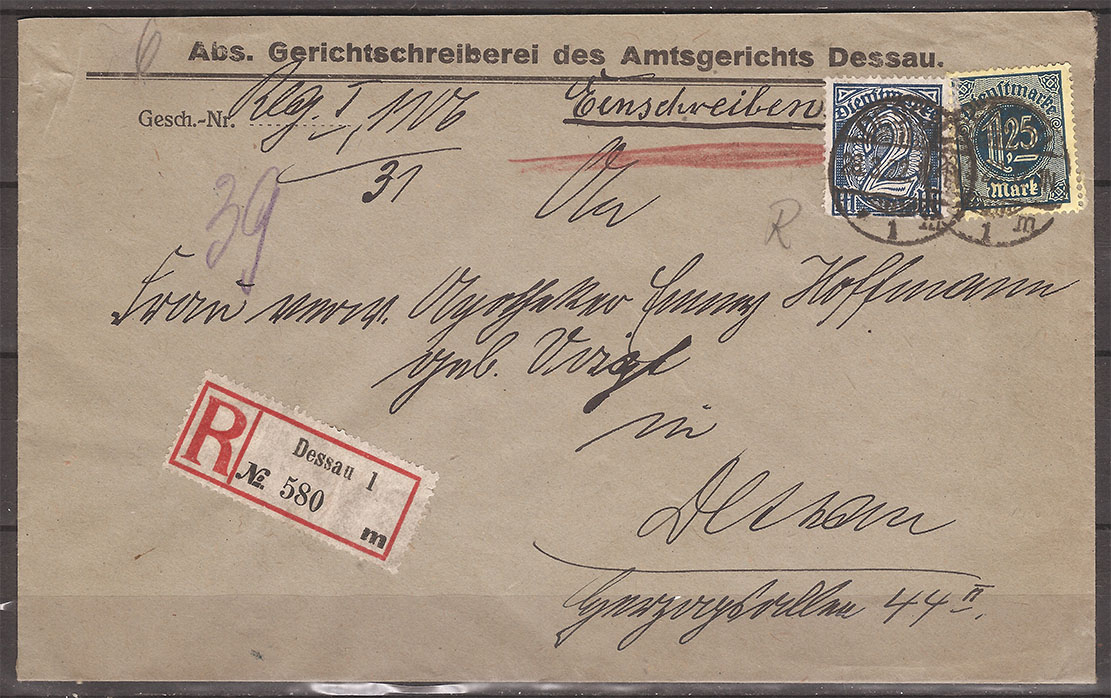 Abs. Gerichtschreiberei des Amtsgerichts Dessau.
Gesch.-Nr. Reg. I, 1106
31
Einschreiben
An
39
R
Dienstmarke
2
Dienstmarke
1,25
Mark
1 m
1 m
Frau verw. Apotheker Emmy Hoffmann
geb. Voigt
in
Dessau
R
Dessau 1
No. 580
m
44 II.